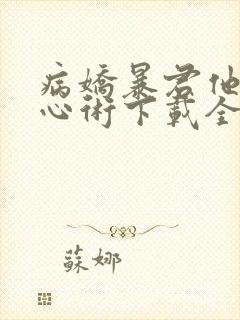 病嬌暴君他
心術下載全
蘇娜